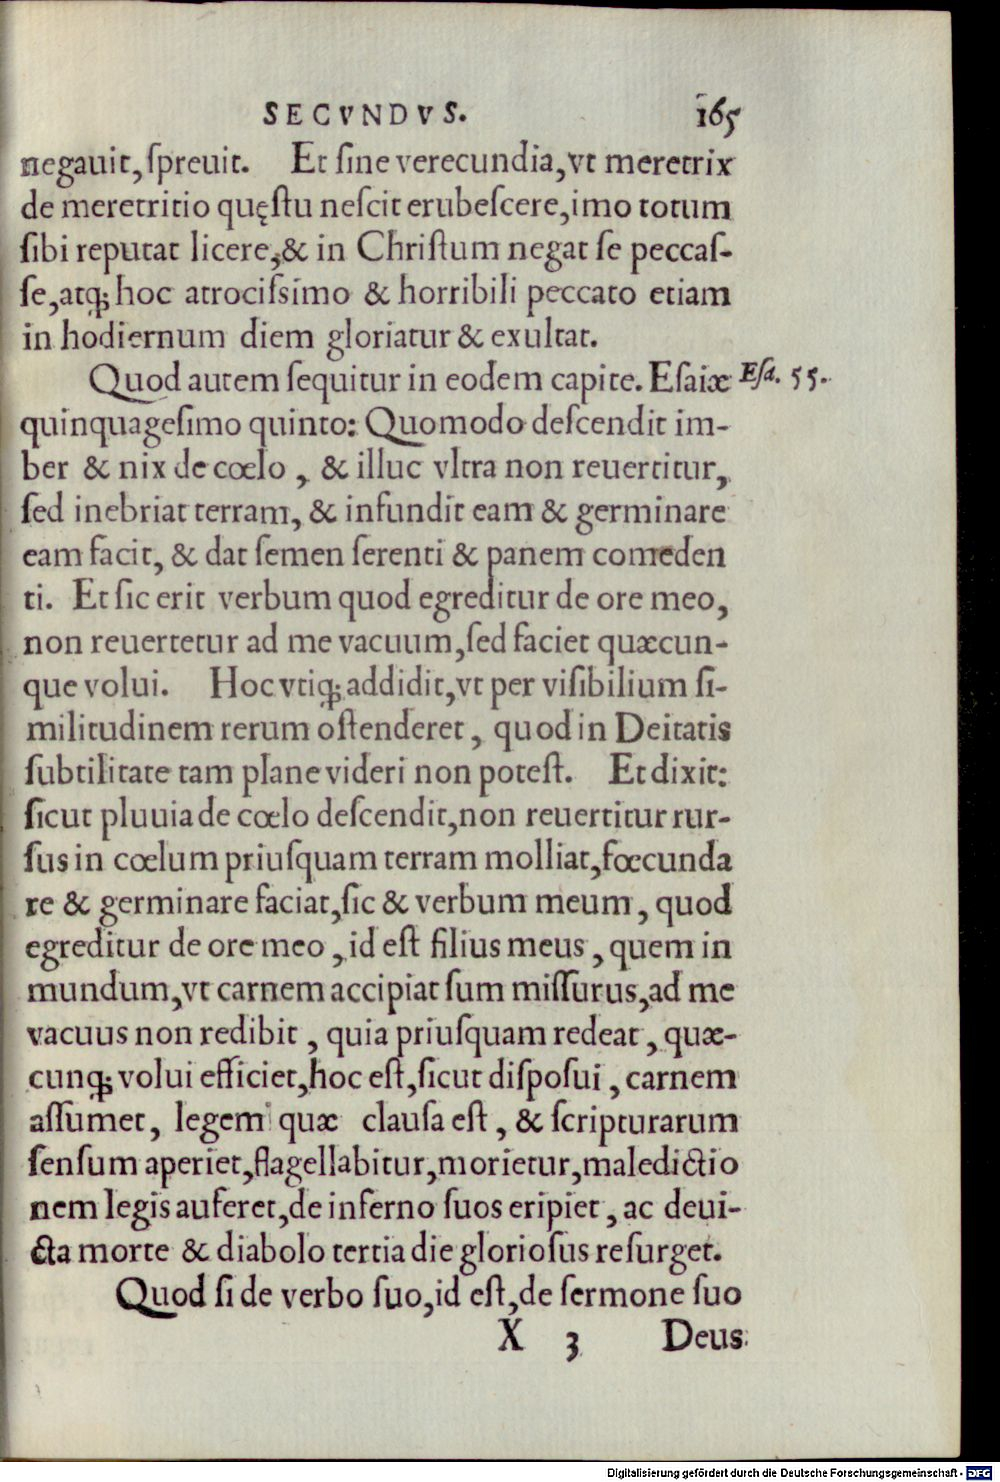 SECVNDVS. 165
negauit, ſpreuit. Et ſine verecundia, vt meretrix
de meretritio quęſtu neſcit erubeſcere, imo totum
ſibi reputat licere, & in Chriſtum negat ſe peccaſ-
ſe, atq; hoc atrociſsimo & horribili peccato etiam
in hodiernum diem gloriatur & exultat.
Quod autem ſequitur in eodem capite. Eſaiæ Eſa. 55.
quinquageſimo quinto: Quomodo deſcendit im-
ber & nix de cœlo, & illuc vltra non reuertitur,
ſed inebriat terram, & infundit eam & germinare
eam facit, & dat ſemen ſerenti & panem comeden
ti. Et ſic erit verbum quod egreditur de ore meo,
non reuertetur ad me vacuum, ſed faciet quæcun-
que volui. Hoc vtiq; addidit, vt per viſibilium ſi-
militudinem rerum oſtenderet, quod in Deitatis
ſubtilitate tam plane videri non poteſt. Et dixit:
ſicut pluuia de cœlo deſcendit, non reuertitur rur-
ſus in cœlum priuſquam terram molliat, fœcunda
re & germinare faciat, ſic & verbum meum, quod
egreditur de ore meo, id eſt filius meus, quem in
mundum, vt carnem accipiat ſum miſſurus, ad me
vacuus non redibit, quia priuſquam redeat, quæ-
cunq; volui efficiet, hoc eſt, ſicut diſpoſui, carnem
aſſumet, legem quæ clauſa eſt, & ſcripturarum
ſenſum aperiet, flagellabitur, morietur, maledictio
nem legis auferet, de inferno ſuos eripiet, ac deui-
cta morte & diabolo tertia die glorioſus reſurget.
Quod ſi de verbo ſuo, id eſt, de ſermone ſuo
X 3 Deus
Digitalisierung gefördert durch die Deutsche Forschungsgemeinschaft - DFG